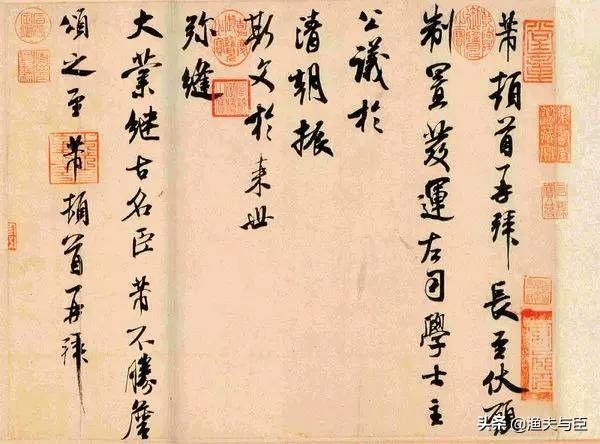 芾頓首再拜長至伏願
制置發運左司學士主
公議於
清朝振
斯文於來世
弥縫
大業继古名臣芾不勝
頌之至芾頓首再拜
头条@渔夫与臣